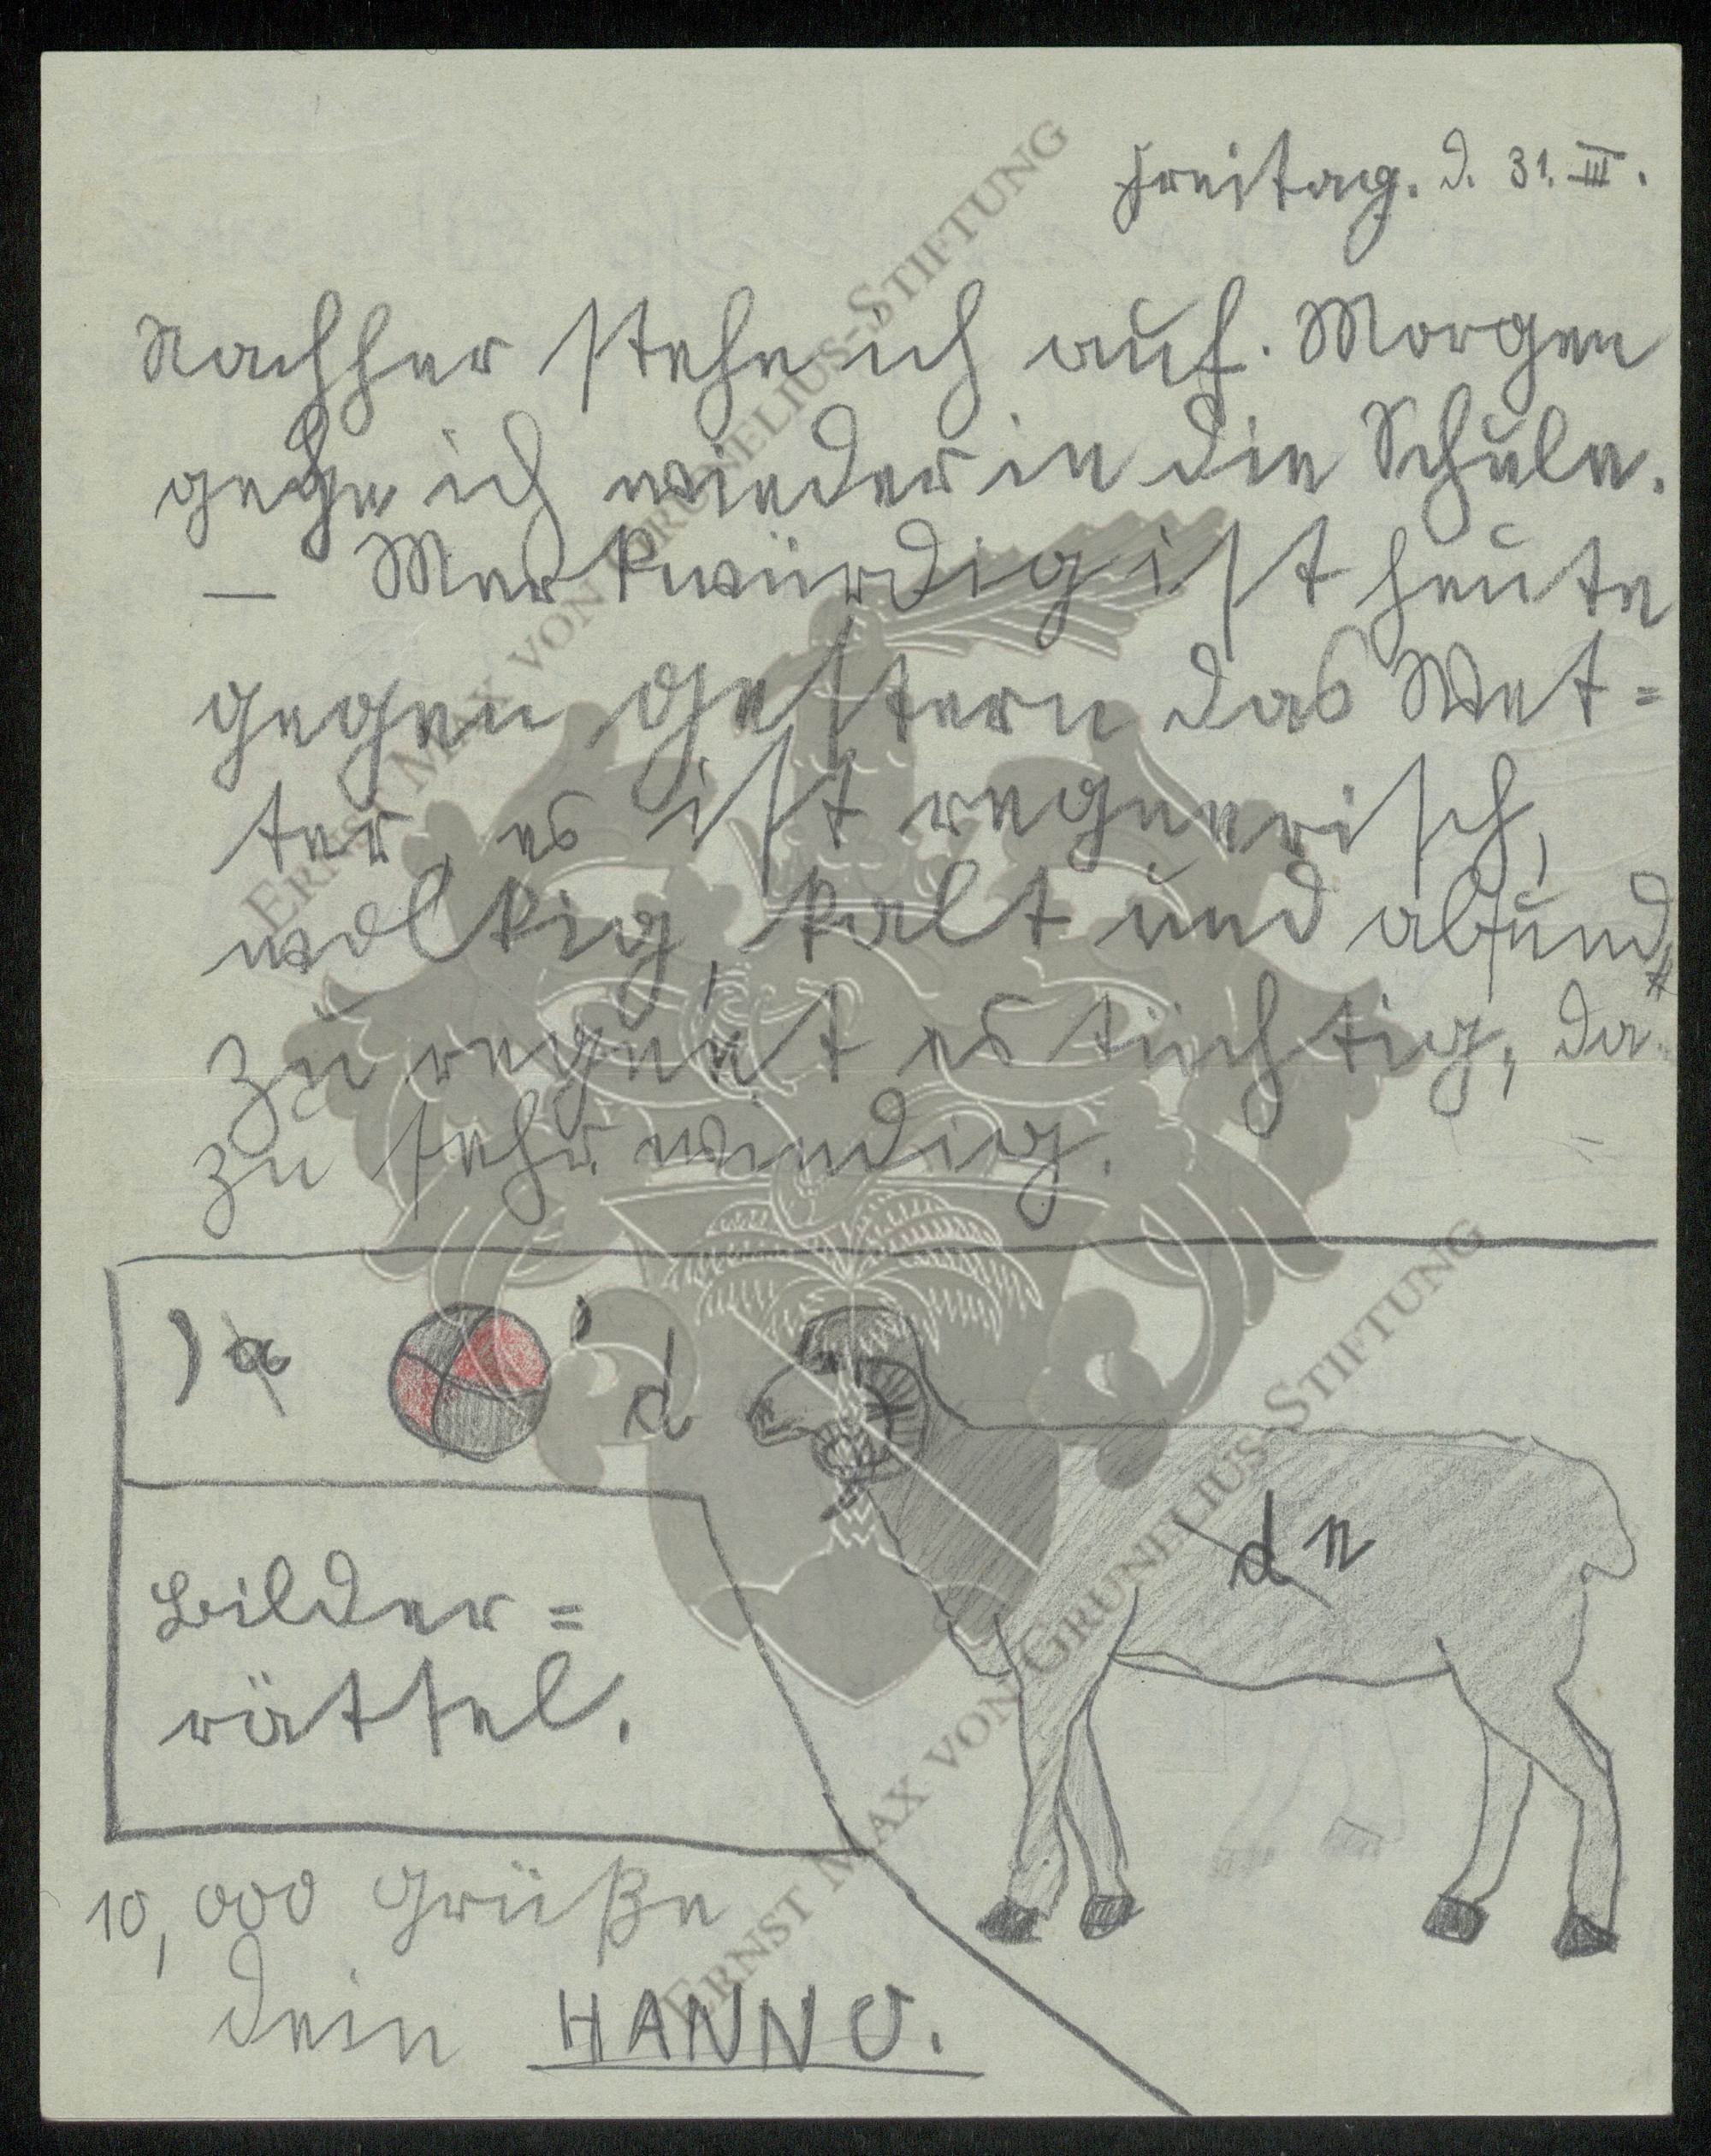 Freitag. d. 31. III.
Nachher stehe ich auf. Morgen
gehe ich wieder in die Schule.
— Merkwürdig ist heute
gegen gestern das Wet=
ter, es ist regnerisch,
wolkig, kalt und ab und
zu regnet es tüchtig, da=
zu sehr windig.
) a ' d
d n
Bilder=
rätsel.
10,000 Grüße
dein HANNO.
ERNST MAX VON GRUNELIUS-STIFTUNG
ERNST MAX VON GRUNELIUS-STIFTUNG